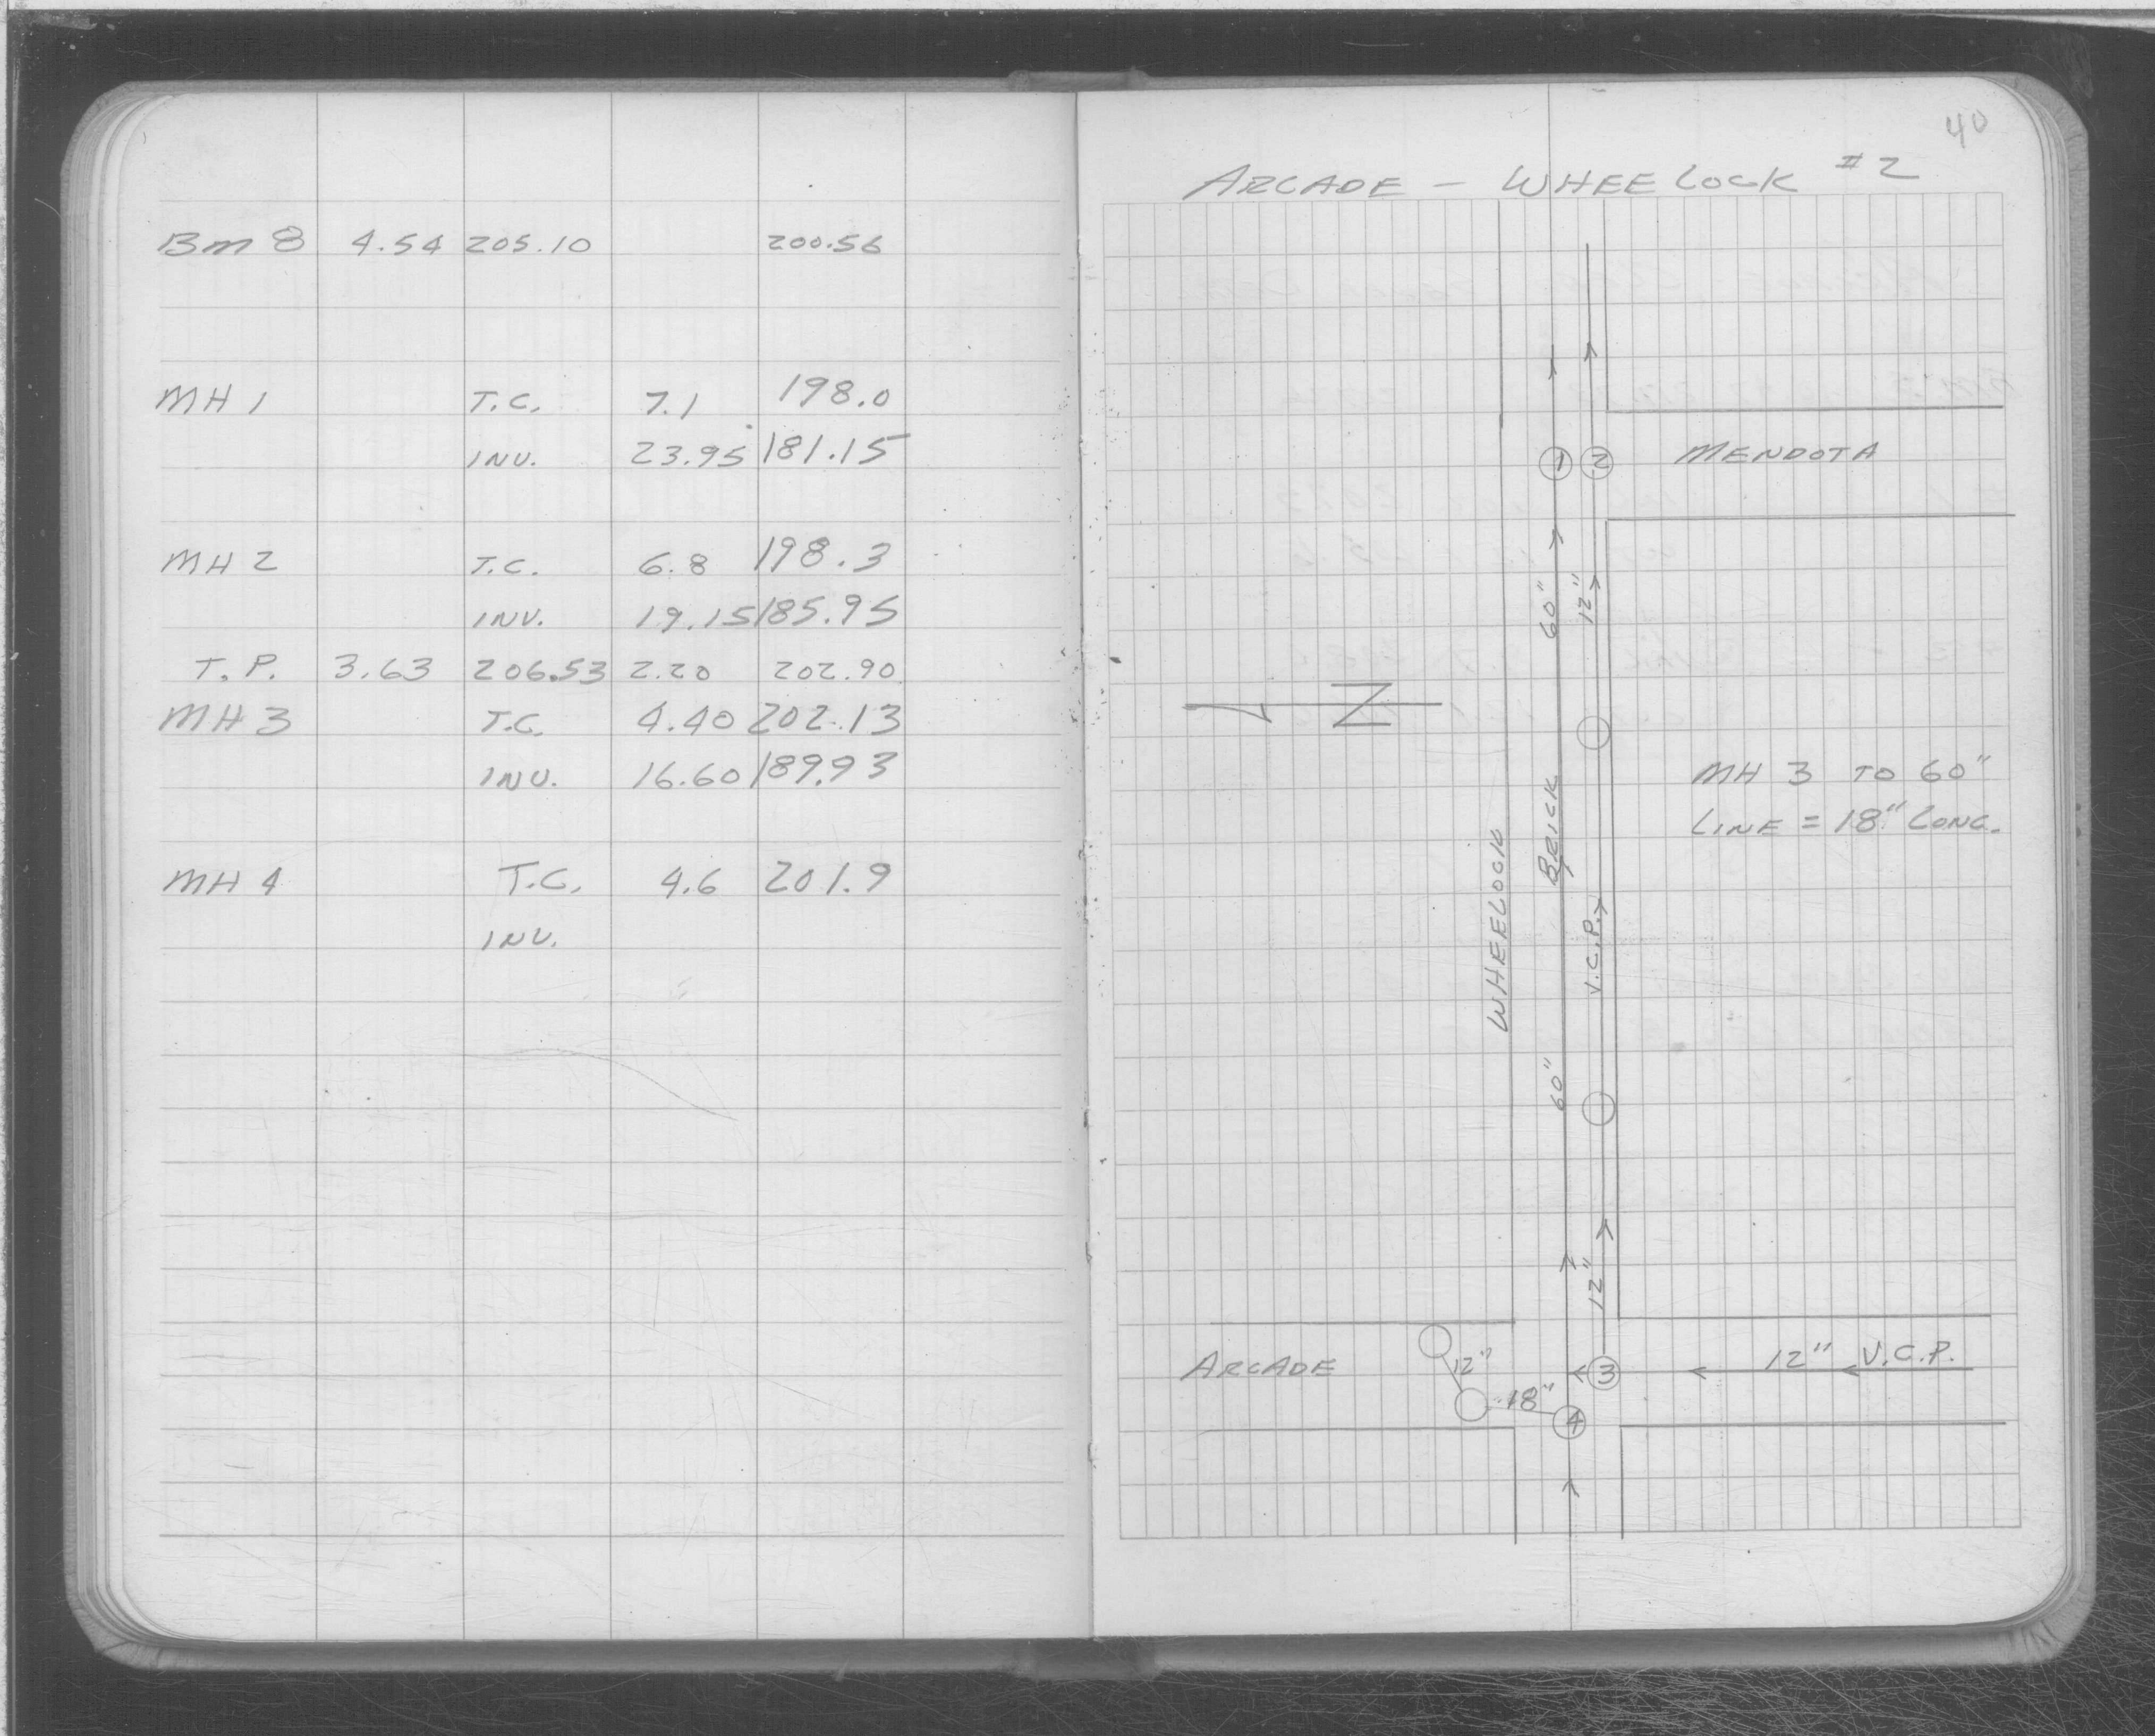 Bm 8 4.54 205.10 200.56
MH 1 T.C. 7.1 198.0
INV. 23.95 181.15
MH 2 T.C. 6.8 198.3
INV. 19.15 185.95
T.P. 3.63 206.53 2.20 202.90
MH 3 T.C. 4.40 202.13
INV. 16.60 189.93
MH 4 T.C. 4.6 201.9
INV.
40
ARCADE - WHEELOCK #2
1 2 MENDOTA
60" 12"
N
MH 3 TO 60"
LINE = 18" CONC.
BRICK
WHEELOCK
V.C.P.
60"
12"
ARCADE 12" 3 12" V.C.P.
18" 4